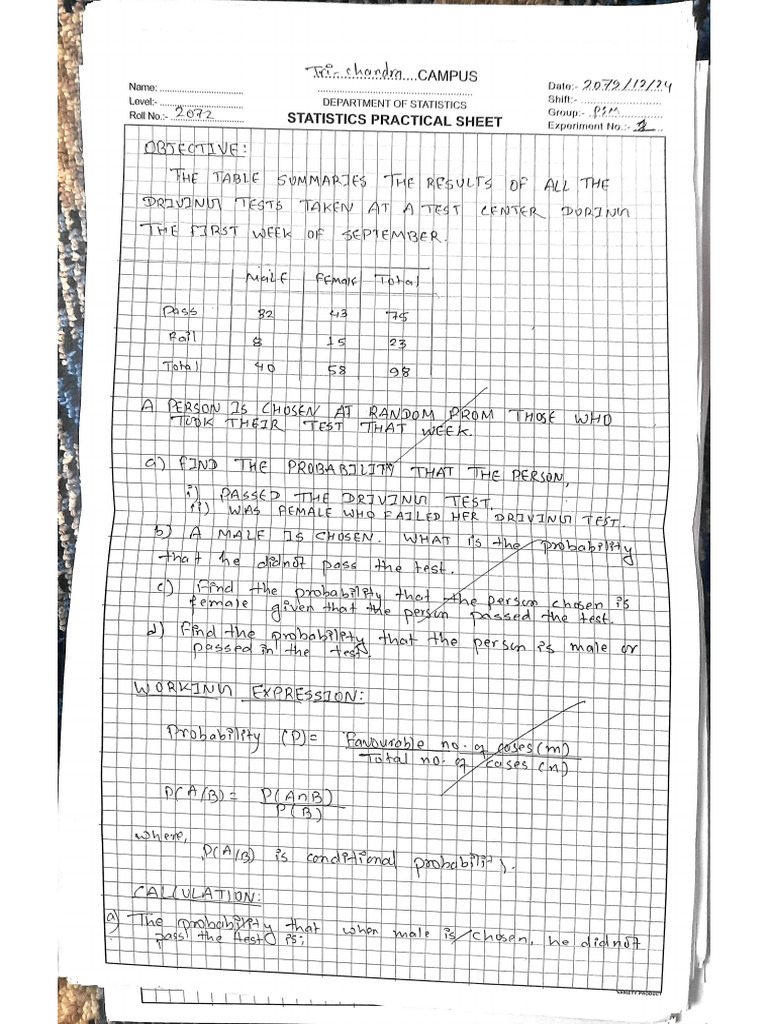 Tri-chandra....CAMPUS
Name: ..............................
DEPARTMENT OF STATISTICS
Level:- ..............................
STATISTICS PRACTICAL SHEET
Roll No.:- 2072
Date:- 2079/12/24
Shift:- ..............................
Group:-
Experiment No.:- 1
OBJECTIVE:
THE TABLE SUMMARIES THE RESULTS OF ALL THE
DRIVING TESTS TAKEN AT A TEST CENTER DURING
THE FIRST WEEK OF SEPTEMBER.
Male Female Total
Pass 32 43 75
Fail 8 15 23
Total 40 58 98
A PERSON IS CHOSEN AT RANDOM FROM THOSE WHO
TOOK THEIR TEST THAT WEEK.
a) FIND THE PROBABILITY THAT THE PERSON,
i) PASSED THE DRIVING TEST.
ii) WAS FEMALE WHO FAILED HER DRIVING TEST.
b) A MALE IS CHOSEN. WHAT is the probability
that he didnot pass the test.
c) Find the probability that the person chosen is
female given that the person passed the test.
d) Find the probability that the person is male or
passed in the test.
WORKING EXPRESSION:
Probability (P) = Favourable no. of cases (m)
Total no. of cases (n)
P(A/B) = P(A∩B)
P(B)
where,
P(A/B) is conditional probability.
CALCULATION:
a) The probability that when male is chosen, he didnot
pass the test is;